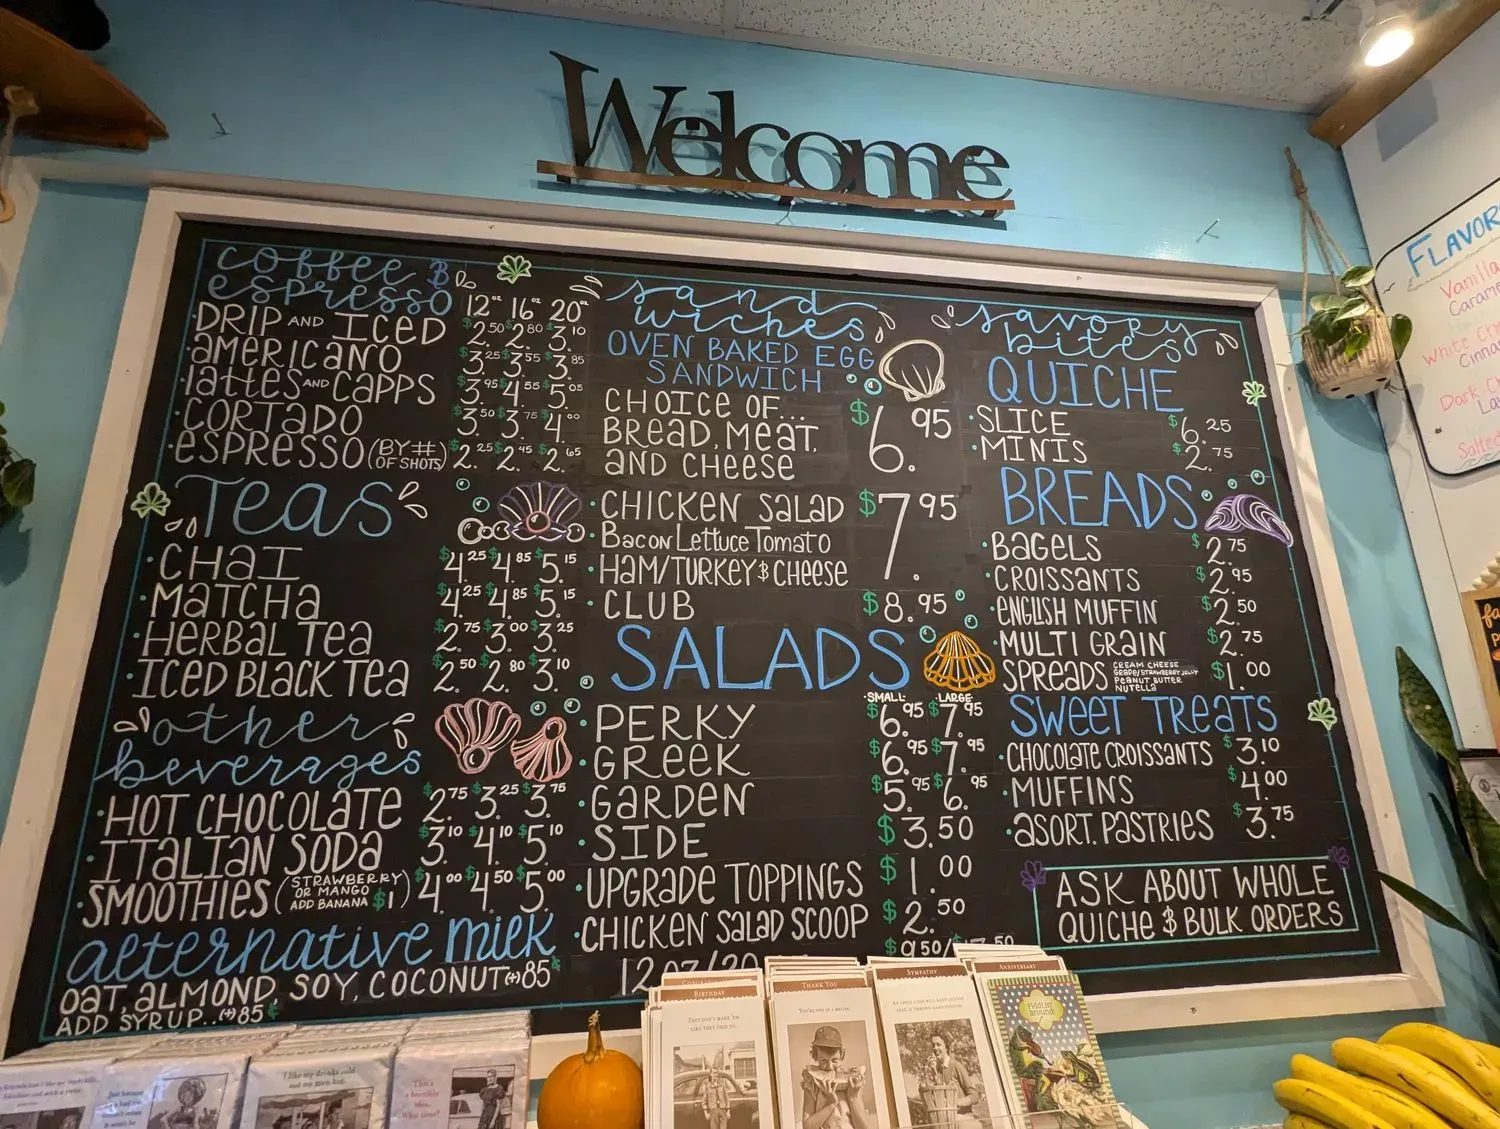 Welcome
coffee & espresso
12oz 16oz 20oz
DRIP AND ICED $2.50 $2.80 $3.10
americano $3.25 $3.55 $3.85
lattes AND CAPPS $3.95 $4.55 $5.05
CORTADO $3.50 $3.75 $4.00
espresso (BY # OF SHOTS) $2.25 $2.45 $2.65
Teas
CHAI $4.25 $4.85 $5.15
MATCHA $4.25 $4.85 $5.15
HERBAL TEA $2.75 $3.00 $3.25
ICED BLACK TEA $2.50 $2.80 $3.10
other beverages
HOT CHOCOLATE $2.75 $3.25 $3.75
ITALIAN SODA $3.10 $4.10 $5.10
SMOOTHIES (STRAWBERRY OR MANGO ADD BANANA $1) $4.00 $4.50 $5.00
alternative milk
OAT, ALMOND, SOY, COCONUT (+) 85¢
ADD SYRUP... (+) 85¢
sandwiches
OVEN BAKED EGG
SANDWICH
CHOICE OF...
BREAD, MEAT,
AND CHEESE
$6.95
CHICKEN SALAD
Bacon Lettuce Tomato
HAM/TURKEY & CHEESE
$7.95
CLUB $8.95
SALADS
SMALL: LARGE:
PERKY $6.95 $7.95
GREEK $6.95 $7.95
GARDEN $5.95 $6.95
SIDE $3.50
UPGRADE TOPPINGS $1.00
CHICKEN SALAD SCOOP $2.50
savory bites
QUICHE
SLICE $6.25
MINIS $2.75
BREADS
BAGELS $2.75
CROISSANTS $2.95
ENGLISH MUFFIN $2.50
MULTI GRAIN $2.75
SPREADS CREAM CHEESE GRAPE/STRAWBERRY JELLY PEANUT BUTTER NUTELLA $1.00
SWEET TREATS
CHOCOLATE CROISSANTS $3.10
MUFFINS $4.00
ASORT. PASTRIES $3.75
ASK ABOUT WHOLE
QUICHE & BULK ORDERS
FLAVOR
Vanilla
Dark
Salted
BIRTHDAY
THANK YOU
SYMPATHY
ANNIVERSARY
Fiddlin' around!
I like my drinks cold
That's a horrible idea. What time?